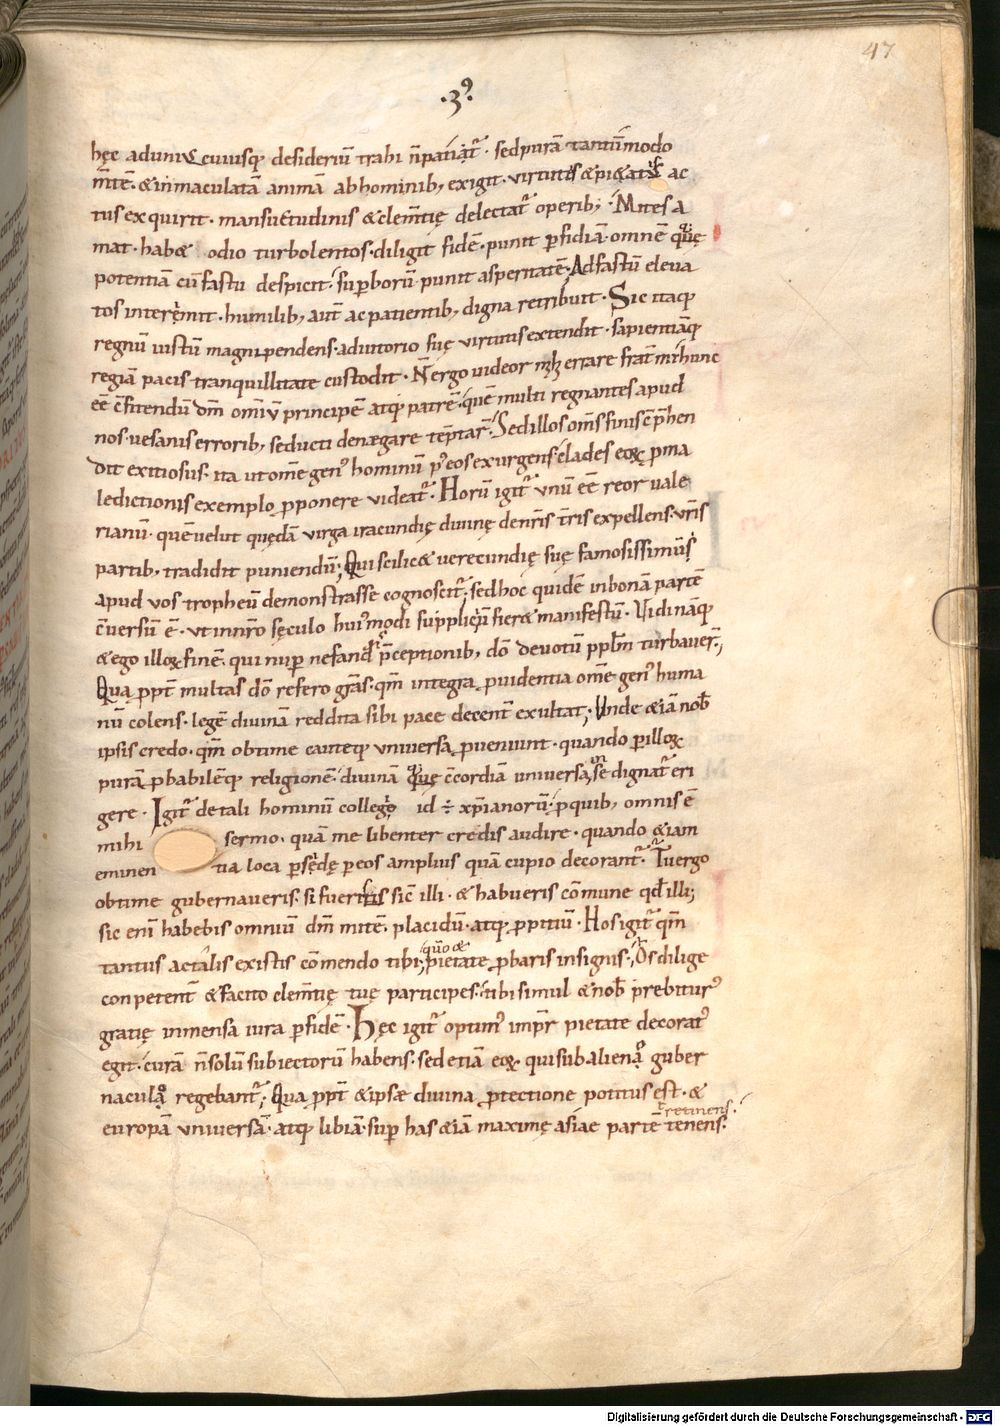 47
.3⁹
hęc ad unicuiusq; desideriū trahi n̄ patiat᷑. sed purā tantūmodo
m̄te. & inmaculatā animā ab hominib; exigit. virtutes & pi&ate ac
tus exquirit. mansu&udinis & clem̄tię delectat᷑ operib;. Mites a
mat. hab& odio turbolentos. diligit fidē. punit ꝑfidiā. omnē quę
potentiā cū fastu despicit. suꝑborū punit asperitatē. Ad fastū eleua
tos interemit. humilib; aut̄ ac patientib; digna retribuit. Sic itaq;
regnū iustū magnipendens. adiutorio suę virtutis extendit. sapientiāq;
regiā pacis tranquillitate custodit. N̄ ergo uideor errare frat̄ mi hunc
eē c̄fitendū dm̄ omniū principē atq; patrē. quē multi regnantes apud
nos uesanis errorib; seducti denegare tēptar̄. Sed illos om̄s finis cōp̄hen
dit exitiosus. ita ut om̄e gen⁹ hominū p⁹ eos exurgens clades eoꝝ ꝓ ma
ledictionis exemplo ꝓponere videat᷑. Horū igit᷑ vnū eē reor uale
rianū. quē velut quędā virga iracundię diuinę de nr̄is t̄ris expellens. vr̄is
partib; tradidit puniendū; Qui scilic& verecundię suę famosissimū
apud vos tropheū demonstrasse cognoscit᷑; sed hoc quidē in bonā partē
c̄uersū ē. vt in nr̄o sęculo hui⁹modi suppliciū fier& manifestū. Vidi nāq;
& ego illoꝝ finē. qui nuꝑ nefand p̄ceptionib; dō deuotū ppl̄m turbauer̄;
Qua ꝓpt̄ multas dō refero gr̄as. qm̄ integra ꝓuidentia om̄e gen⁹ huma
nū colens. legē diuinā reddita sibi pace decent̄ exultat; Vnde & iā nob̄
ipsis credo. qm̄ obtime cauteq; vniuersa ꝓueniunt. quando ꝑ illoꝝ
purā ꝓbabilēq; religionē. diuinā quę c̄cordiā uniuersa se dignat᷑ eri
gere. Igit᷑ de tali hominū collegio id ÷ xp̄ianorū. ꝓ quib; omnis ē
mihi sermo. quā me libenter credis audire. quando & iam
eminen tia loca ꝑsędę ꝑ eos amplius quā cupio decorant᷑. Tu ergo
obtime gubernaueris. si fueris sic illi. & habueris cōmune qd̄ illi;
sic enī habebis omniū dm̄ mitē. placidū. atq; ꝓpitiū. Hos igit᷑ qm̄
tantus ac talis existis cōmendo tibi; quo & pietate ꝓbaris insignis. Os dilige
conpetent̄ & facito clem̄tię tuę participes. tibi simul & nob̄ prebitur⁹
gratię inmensa iura ꝑ fidē. Hęc igit᷑ optim⁹ impr̄ pietate decorat⁹
egit. curā n̄ solū subiectorū habens. sed etiā eoꝝ. qui sub aliena guber
nacula regebant᷑; Qua ꝓpt̄ & ipsæ diuina ꝓtectione potitus est. &
retinens.
europā vniuersā. atq; libiā. suꝑ has & iā maximę asiae partē tenens.
Digitalisierung gefördert durch die Deutsche Forschungsgemeinschaft - DFG